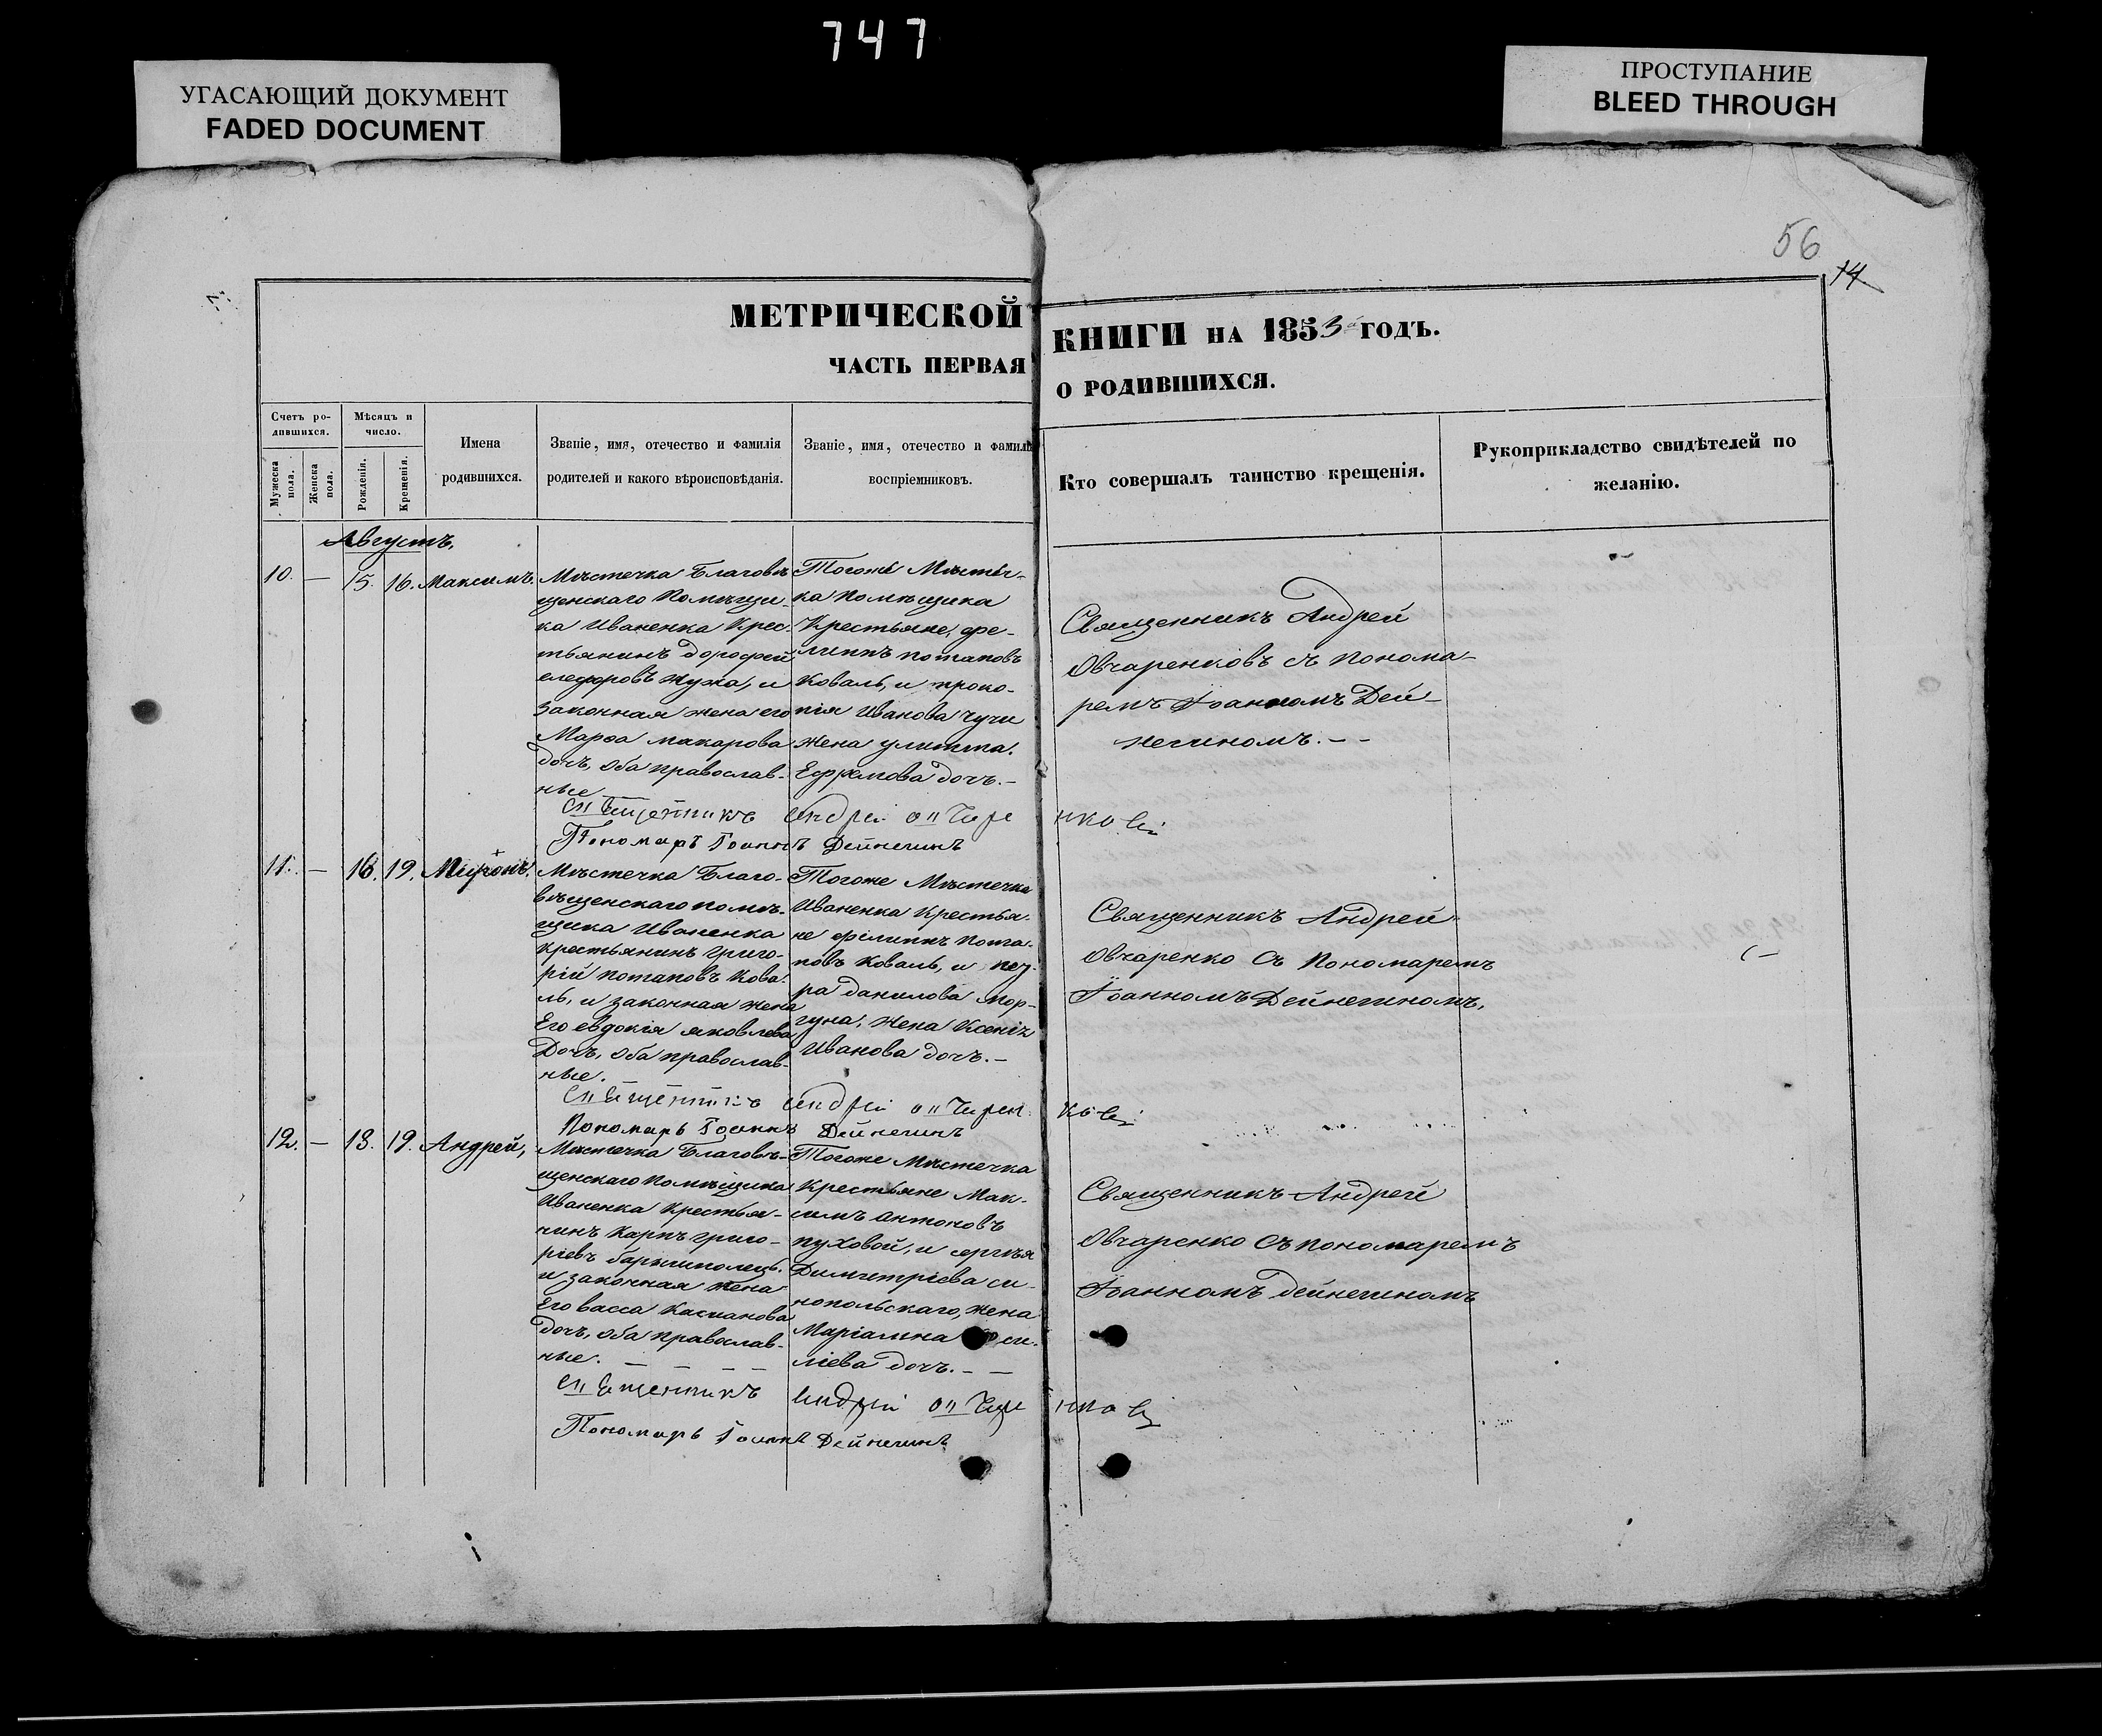 747
УГАСАЮЩИЙ ДОКУМЕНТ
FADED DOCUMENT
ПРОСТУПАНИЕ
BLEED THROUGH
56
14
МЕТРИЧЕСКОЙ КНИГИ НА 1853 ГОДЪ.
ЧАСТЬ ПЕРВАЯ О РОДИВШИХСЯ.
Счетъ ро-
дившихся.
Мужеска пола.
Женска пола.
Мѣсяцъ и
число.
Рожденія.
Крещенія.
Имена
родившихся.
Званіе, имя, отечество и фамилія
родителей и какого вѣроисповѣданія.
Званіе, имя, отечество и фамилі
воспріемниковъ.
Кто совершалъ таинство крещенія.
Рукоприкладство свидѣтелей по
желанію.
Августъ.
10. — 15. 16. Максимъ.
Мѣстечка Благовѣ
щенскаго Помѣщи-
ка Иваненка Крес-
тьянинъ дорофей
елефоровъ Жужа, и
Законная жена его
Марѳа макарова
дочь, оба православ-
ные
Тогоже Мѣстеч-
ка Помѣщика
Крестьяне, фи-
липъ потаповъ
Коваль, и проко-
пія Иванова Чучи
жена улитта.
Ефремова дочь.—
Священникъ Андрей
Овчаренковъ съ понома-
ремъ Іоанномъ Дей-
негиномъ.——
Священникъ Андрей Овчаренковъ
Пономарь Іоаннъ Дейнегинъ
11. — 16. 19. Миронъ.
Мѣстечка Благо-
вѣщенскаго помѣ-
щика Иваненка
крестьянинъ григо-
рій потаповъ Кова
ль, и законная жена
Его евдокія яковлева
Дочь, оба православ-
ные.
Тогоже Мѣстечка
Иваненка Крестья-
не филипъ пота-
повъ Коваль, и
данилова мор-
гуна, жена Ксенія
Иванова дочь.—
Священникъ Андрей
Овчаренко съ Пономаремъ
Іоанномъ Дейнегиномъ.
Священникъ Андрей
Пономарь Іоаннъ Дейнегинъ
12. — 18. 19. Андрей,
Мѣстечка Благовѣ-
щенскаго Помѣщика
Иваненка Крестья-
нинъ Карпъ григо-
ріевъ
и законная жена
Его васса Касианова
дочь, оба православ-
ные. — — — —
Тогоже Мѣстечка
Крестьяне Мак-
симъ антоновъ
пуховой, и сергѣя
Димитріева си-
нопольскаго, жена
Маріамна
ліева дочь.——
Священникъ Андрей
Овчаренко съ пономаремъ
Іоанномъ дейнегиномъ
Священникъ Андрей
Пономарь Іоаннъ Дейнегинъ